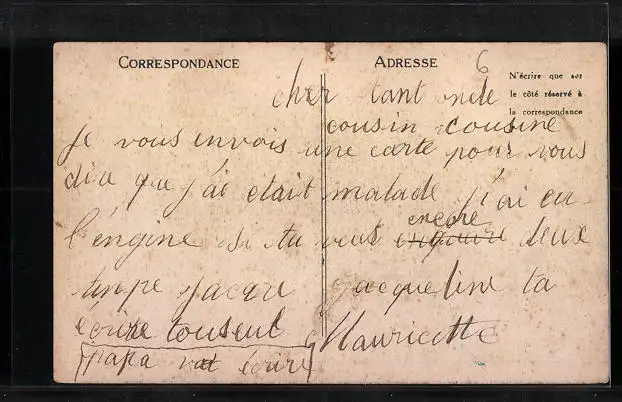 CORRESPONDANCE
ADRESSE
6
N'écrire que sur
le côté réservé à
la correspondance
cher tant oncle
cousin cousine
Je vous envois une carte pour vous
dire que j'ai etait malade j'ai eu
l'engine si tu veut encore deux
jacqueline ta
ecrire touseul Mauricette
papa vat écrire